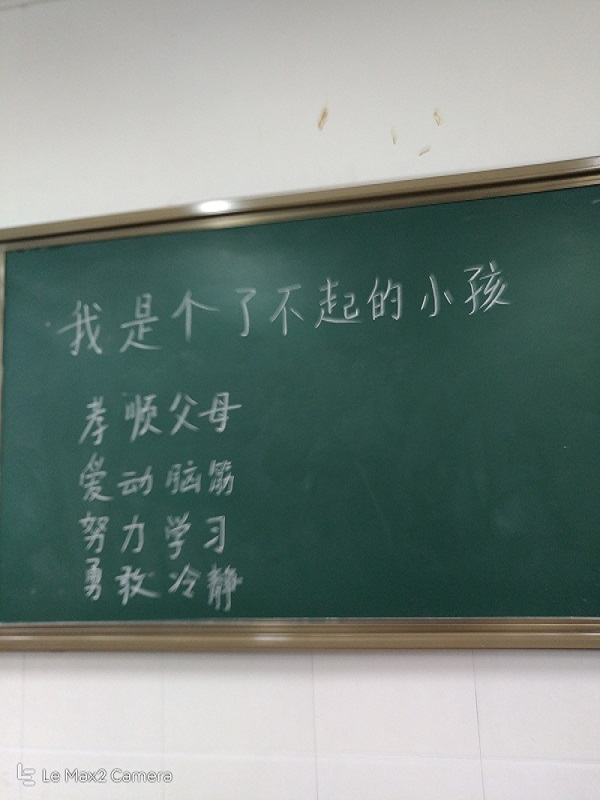 我是个了不起的小孩
孝顺父母
爱动脑筋
努力学习
勇敢冷静
Le Max2 Camera